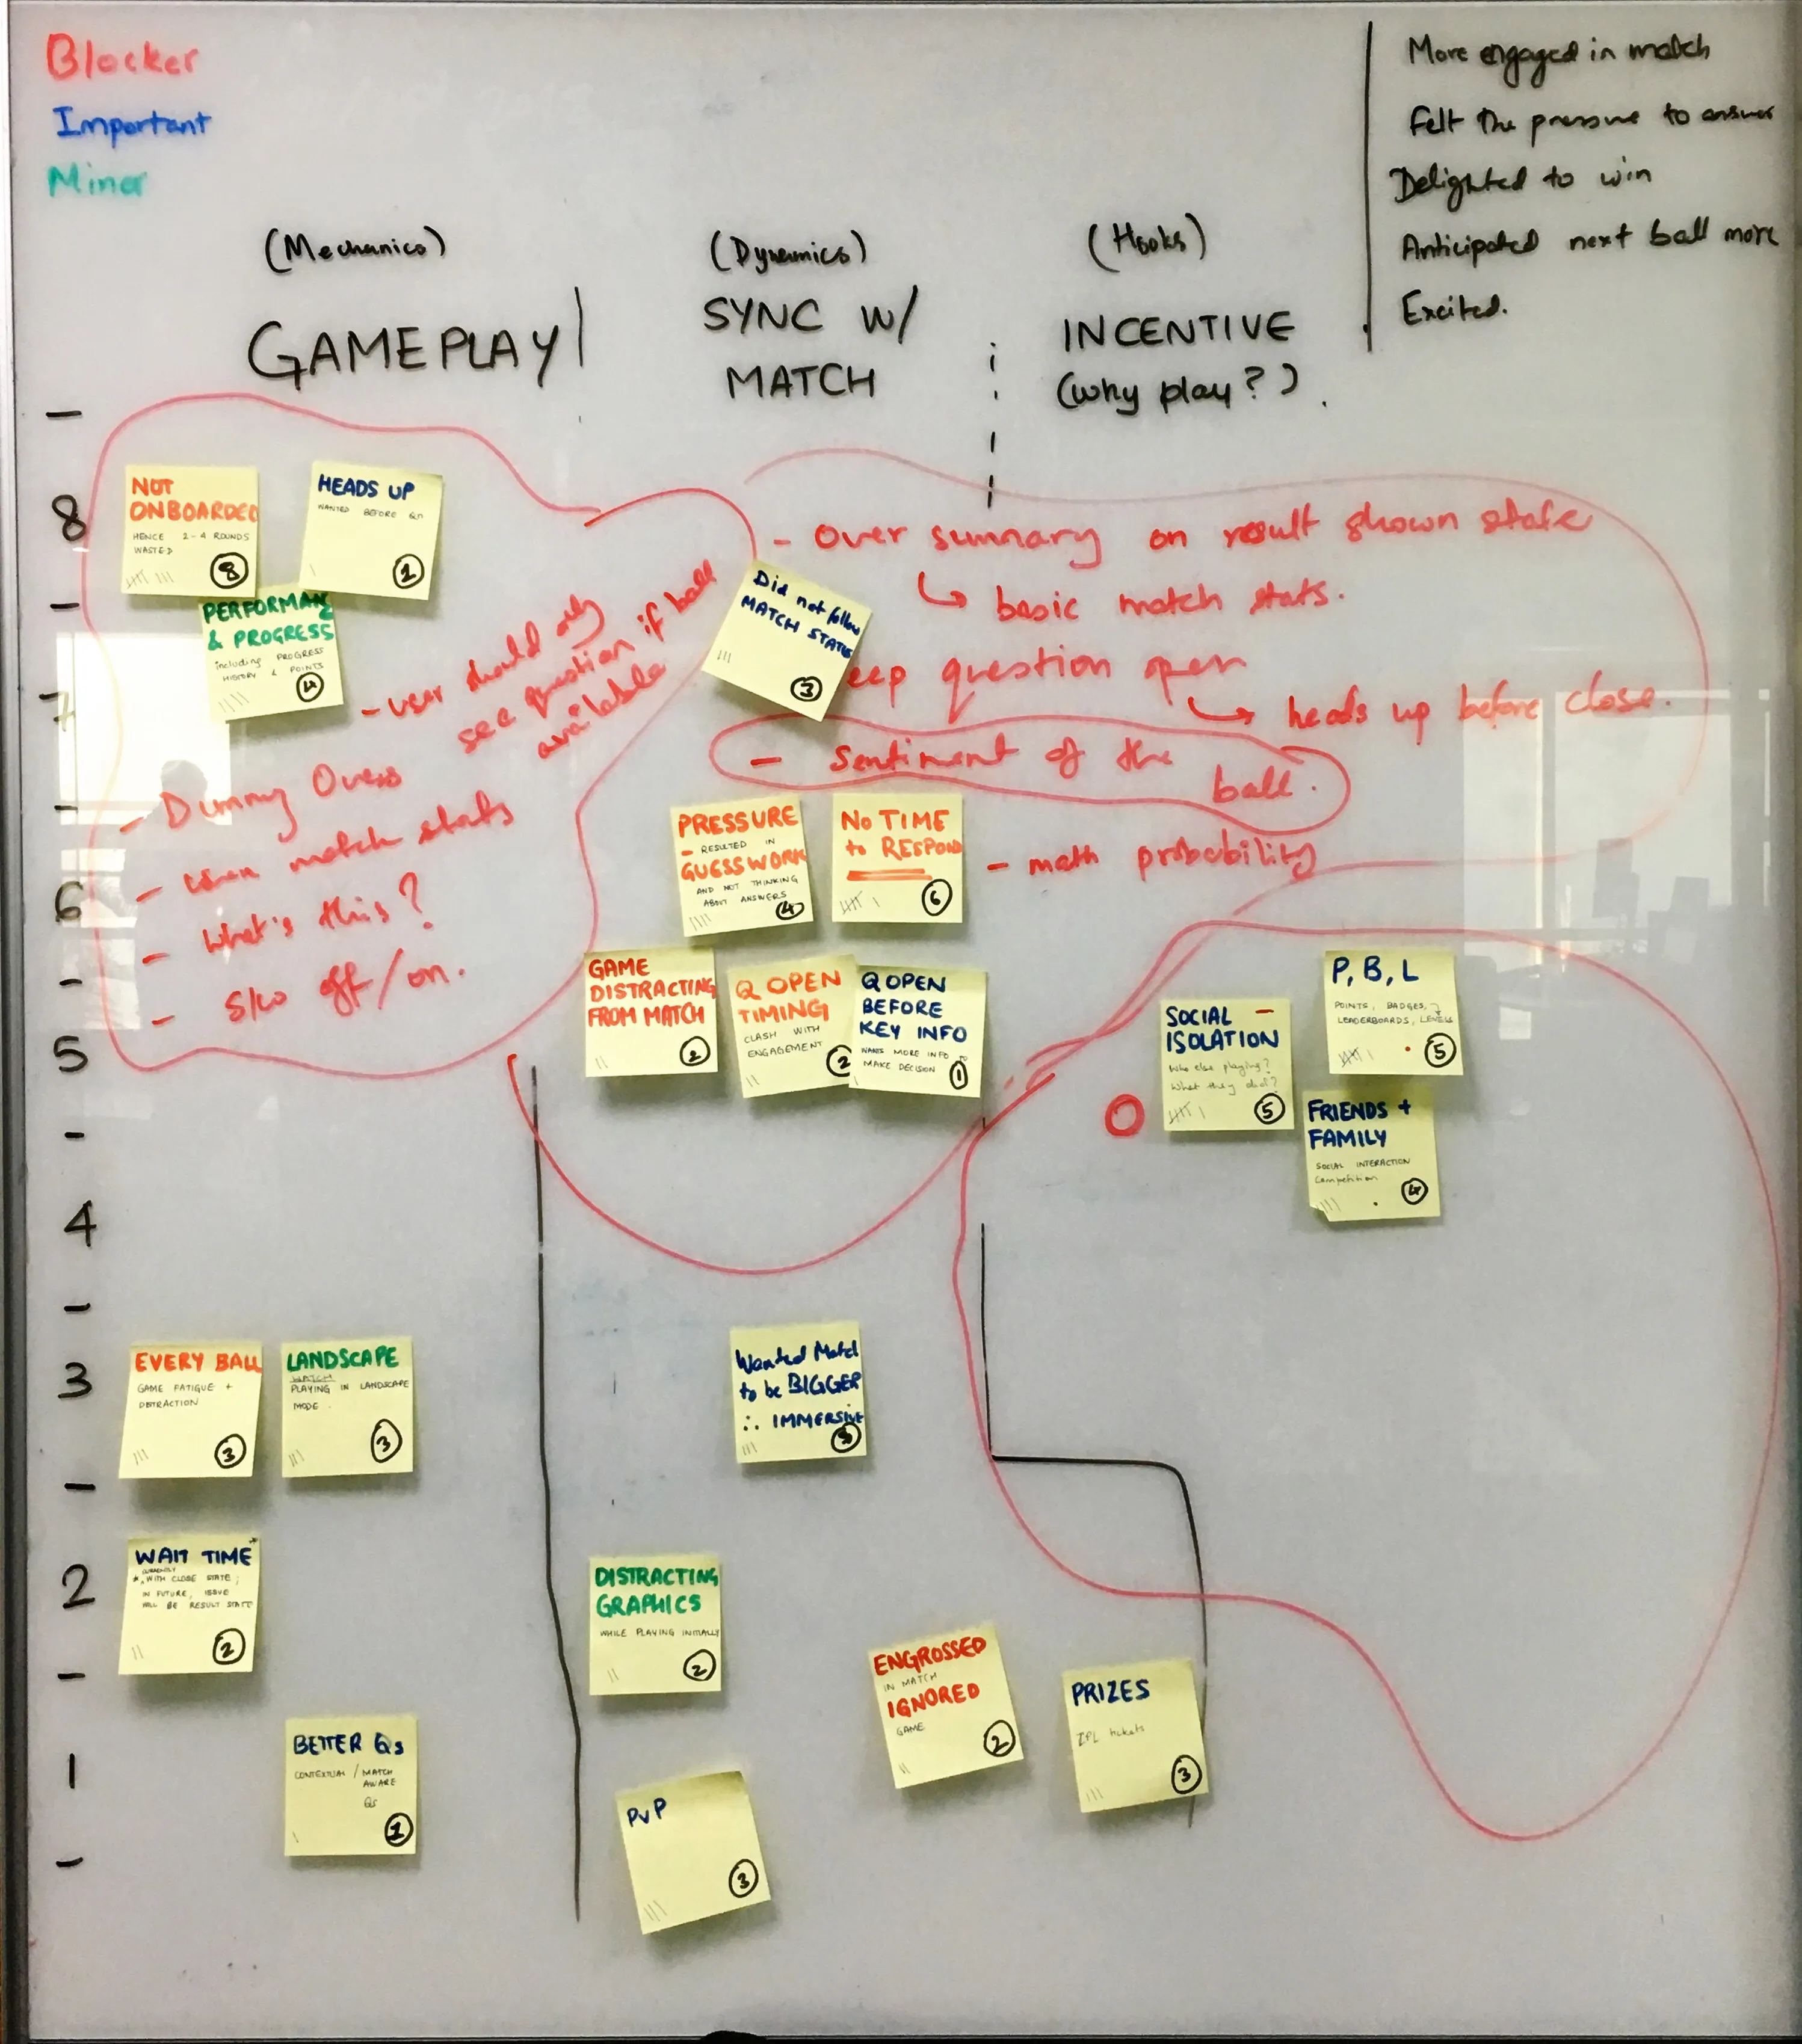 Blocker
Important
Minor
More engaged in match
Felt the pressure to answer
Delighted to win
Anticipated next ball more
Excited.
(Mechanics)
GAMEPLAY
(Dynamics)
SYNC W/
MATCH
(Hooks)
INCENTIVE
(why play?)
8
7
6
5
4
3
2
1
NOT
ONBOARDED
HENCE 2-4 ROUNDS
WASTED
8
HEADS UP
WANTED BEFORE Qn
1
PERFORMAN
& PROGRESS
including PROGRESS
HISTORY & POINTS
4
- user should only
see question if ball
available
- Dummy Overs
- when match starts
- What's this?
- S/W off/on.
- Over summary on result shown state
↳ basic match stats.
Did not follow
MATCH STATE
3
eep question open
↳ heads up before close.
- Sentiment of the
ball.
- math probability
PRESSURE
- RESULTED IN
GUESSWORK
AND NOT THINKING
ABOUT ANSWERS
4
No TIME
to RESPOND
6
GAME
DISTRACTING
FROM MATCH
2
Q OPEN
TIMING
CLASH WITH
ENGAGEMENT
2
Q OPEN
BEFORE
KEY INFO
WANTS MORE INFO TO
MAKE DECISION
1
SOCIAL -
ISOLATION
Who else playing?
What they did?
5
P, B, L
POINTS, BADGES,
LEADERBOARDS, LEVELS
5
FRIENDS +
FAMILY
SOCIAL INTERACTION
Competition
4
EVERY BALL
GAME FATIGUE +
DISTRACTION
3
LANDSCAPE
WATCH
PLAYING IN LANDSCAPE
MODE
3
Wanted Match
to be BIGGER
∴ IMMERSIVE
3
WAIT TIME*
CURRENTLY
*, WITH CLOSE STATE;
IN FUTURE, ISSUE
WILL BE RESULT STATE
2
DISTRACTING
GRAPHICS
WHILE PLAYING INITIALLY
2
ENGROSSED
IN MATCH
IGNORED
GAME
2
PRIZES
IPL tickets
3
BETTER Qs
CONTEXTUAL / MATCH
AWARE
Qs
1
PvP
3